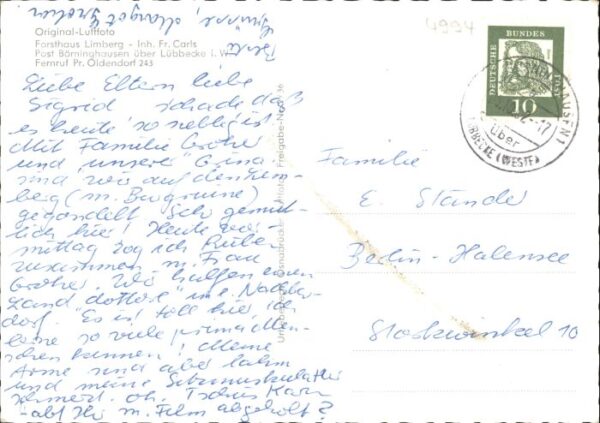 Original-Luftfoto
Forsthaus Limberg - Inh. Fr. Carls
Post Börninghausen über Lübbecke i. W.
Fernruf Pr. Oldendorf 243
4994
DEUTSCHE BUNDESPOST
10
über
LÜBBECKE (WESTF)
Liebe Eltern liebe
Sigrid schade daß
es heute so neblig ist
Mit Familie
und "unsere"
sind wir auf den Lim-
berg (m. Burgruine)
gegondelt. Sehr gemüt-
lich hier! Heute vor-
mittag zog ich Rüben
zusammen m. Frau
Wir halfen einem
"Landdottore" im Nachbar-
dorf. Es ist toll hier, ich
lerne so viele prima Men-
schen kennen! Meine
Arme sind aber lahm
und meine
schmerzt. oh. Tschüs
- habt Ihr m. Film abgeholt?
Familie
E. Stande
Berlin-Halensee
10